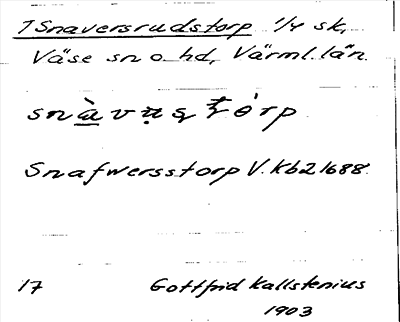 1 Snaversrudstorp 1/4 sk,
Väse sn o hd, Värml. län.
Snafwersstorp V. Kb 2 1688.
17 Gottfrid Kallstenius
1903